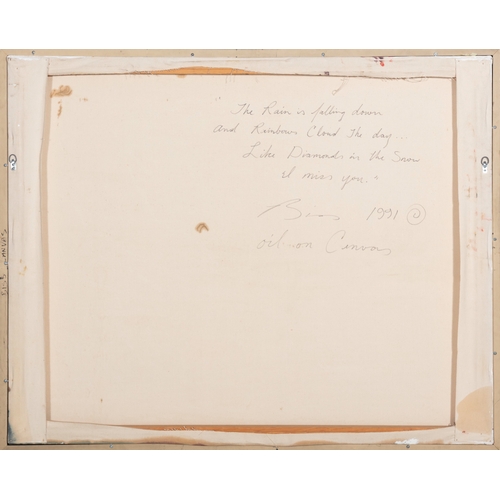 The Rain is falling down
and Rainbows Cloud The day..
Like Diamonds in the Snow
I miss you."
1991 ©
oil on Canvas